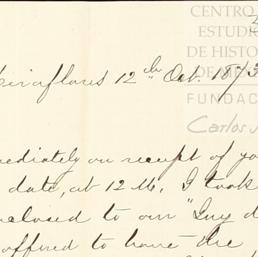 CENTRO
ESTUDI
DE HISTO
DE M
FUNDAC
Carlos
iraflores 12 Oct. 187
mediately on receipt of yo
date, at 12 M. I took
nclosed to our "Guy d
offered to have the